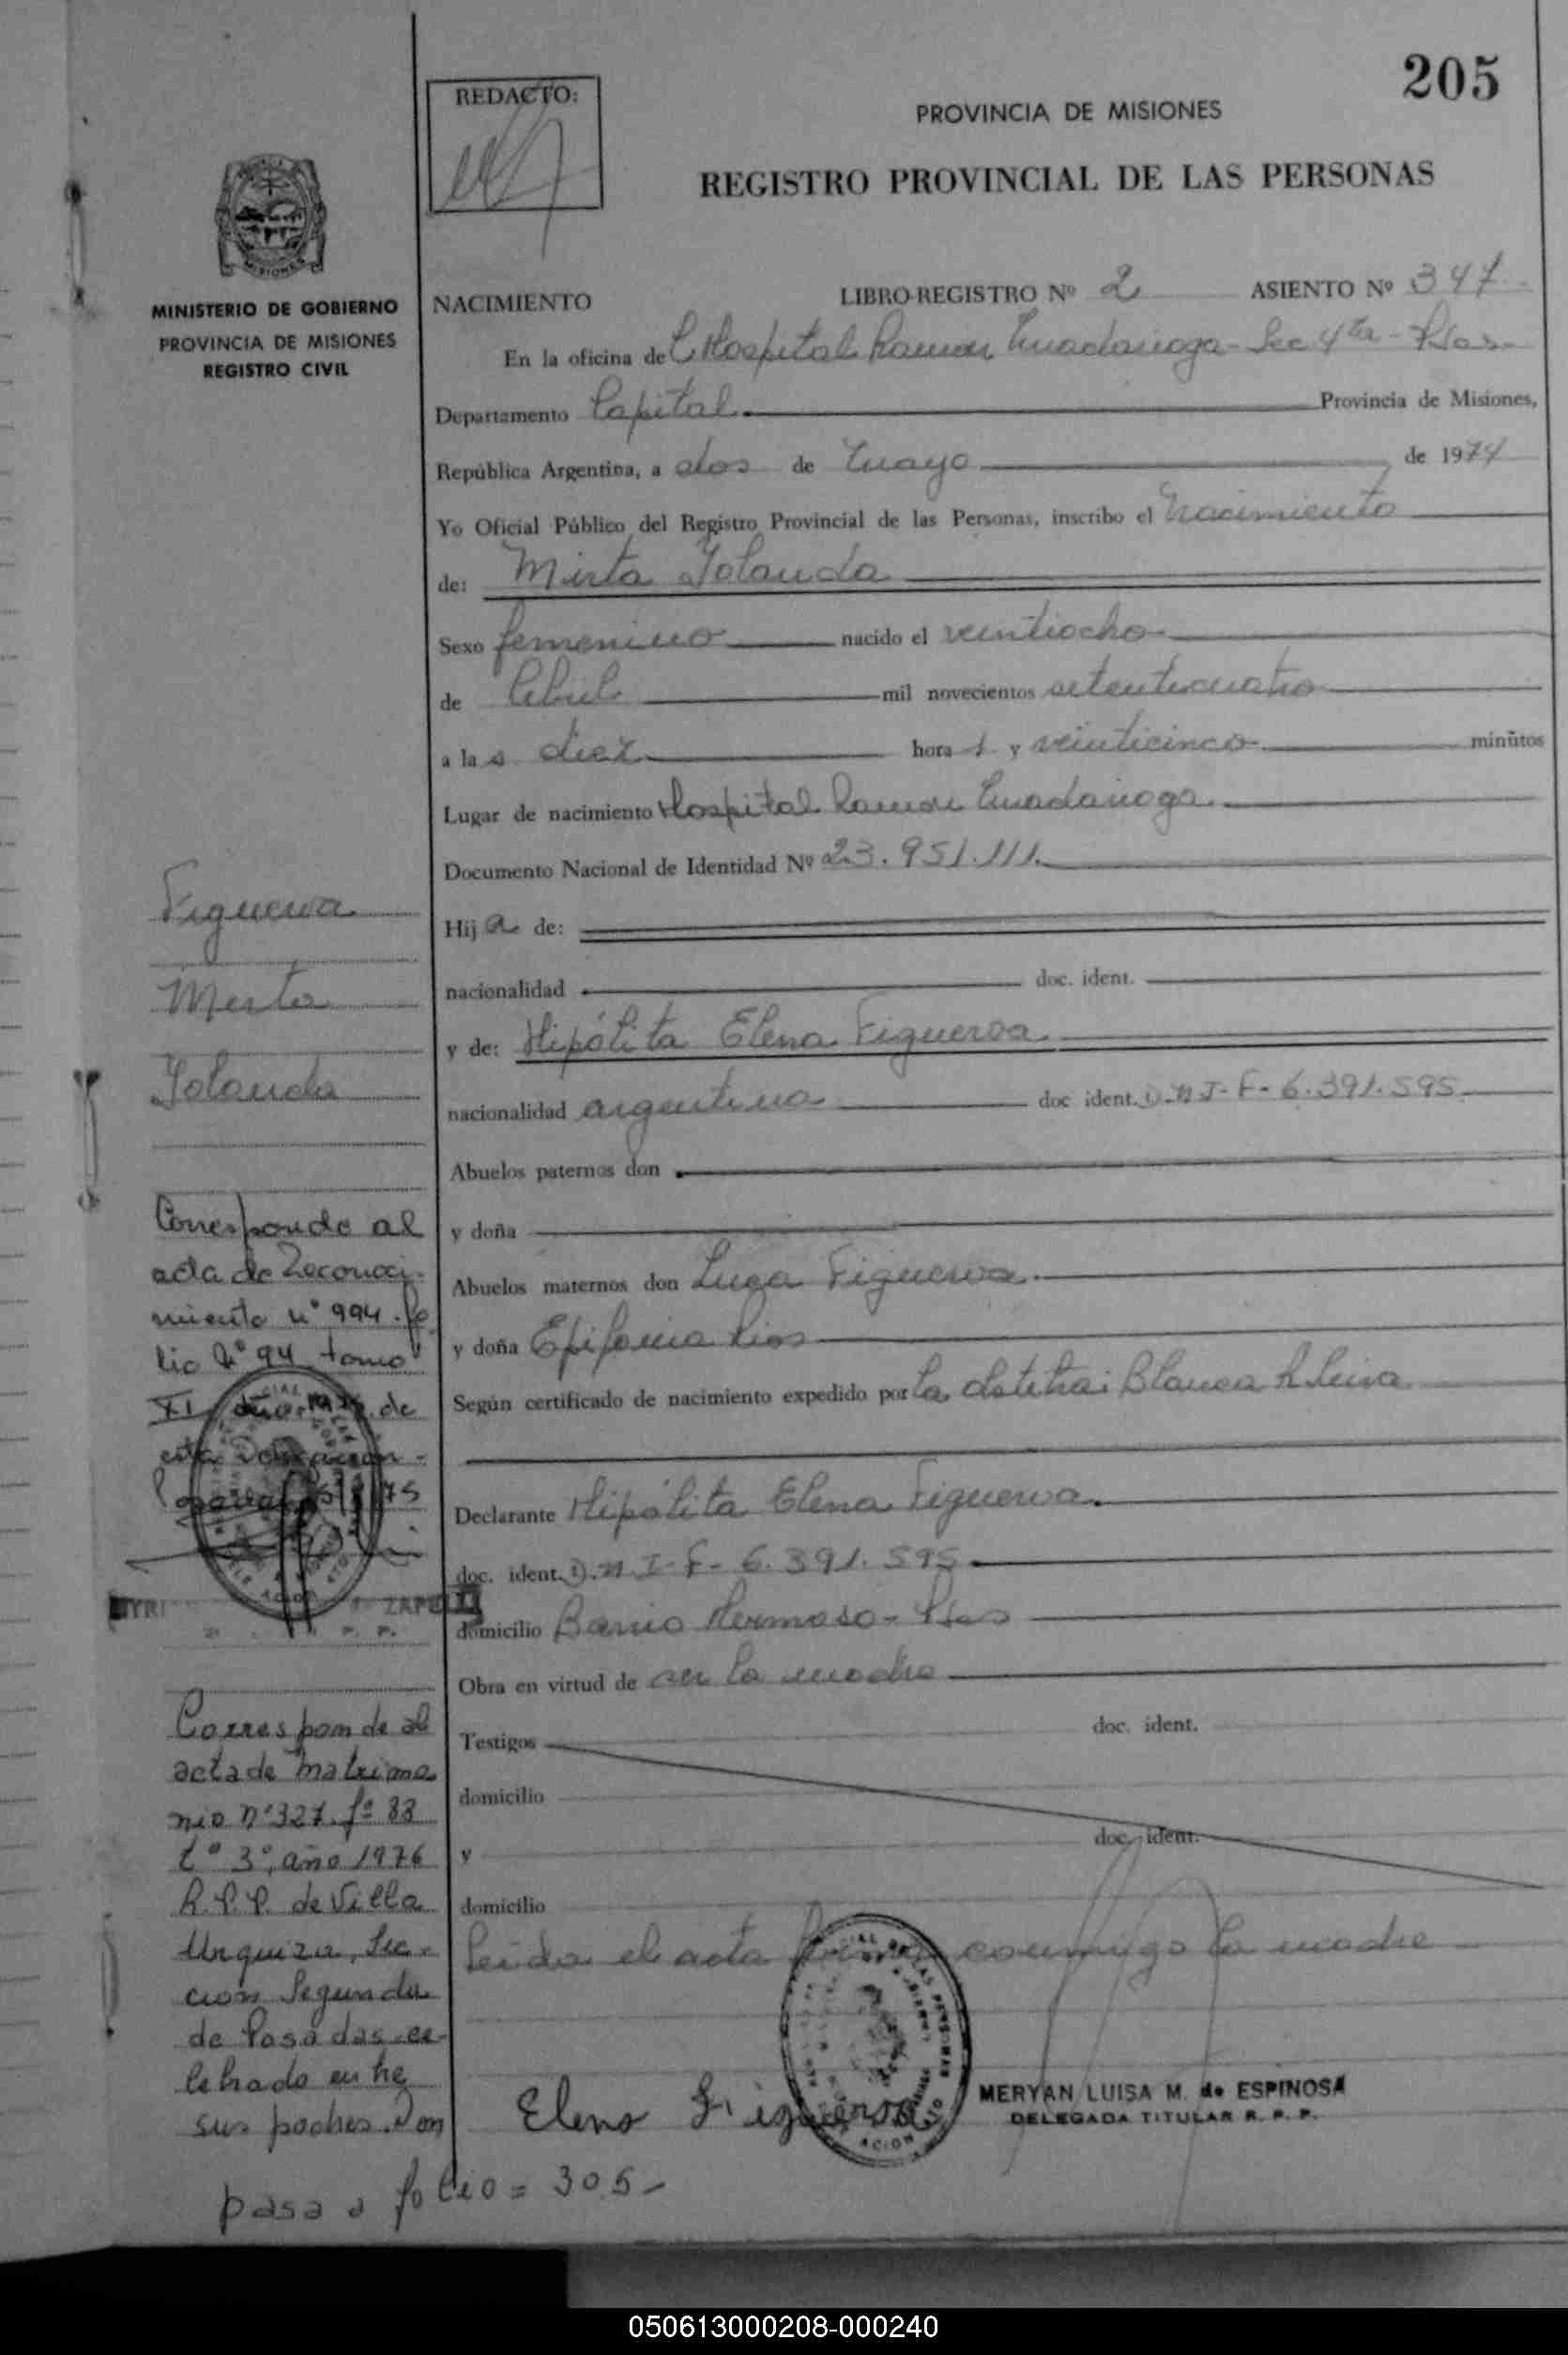 205
REDACTO:
PROVINCIA DE MISIONES
REGISTRO PROVINCIAL DE LAS PERSONAS
MINISTERIO DE GOBIERNO
PROVINCIA DE MISIONES
REGISTRO CIVIL
NACIMIENTO LIBRO-REGISTRO Nº 2 ASIENTO Nº 347
En la oficina de Hospital Ramon Madariaga - Sec 4ta - Pdas.
Departamento Capital Provincia de Misiones,
República Argentina, a dos de Mayo de 1974
Yo Oficial Público del Registro Provincial de las Personas, inscribo el Nacimiento
de: Mirta Yolanda
Sexo femenino nacido el veintiocho
de Abril mil novecientos setenticuatro
a las diez horas y veinticinco minutos
Lugar de nacimiento Hospital Ramon Madariaga.
Documento Nacional de Identidad Nº 23.951.111.
Hija de:
nacionalidad doc. ident.
y de: Hipólita Elena Figueroa
nacionalidad argentina doc ident. D.N.I-F- 6.391.595
Abuelos paternos don
y doña
Abuelos maternos don Luca Figueroa.
y doña Epifania Rios
Según certificado de nacimiento expedido por la obstetra: Blanca
Declarante Hipólita Elena Figueroa.
doc. ident. D.N.I-F- 6.391.595
domicilio Barrio Hermoso - Pdas
Obra en virtud de ser la madre
Testigos doc. ident.
domicilio
y doc. ident.
domicilio
Leida el acta firma conmigo la madre
Elena Figueroa
MERYAN LUISA M. de ESPINOSA
DELEGADA TITULAR R. P. P.
Figueroa
Mirta
Yolanda
Corresponde al
acta de Reconoci-
miento nº 994. fo
lio Nº 94 tomo
XI de
esta
75
Corresponde al
acta de matrimo
nio nº 327. fº 88
tº 3º, año 1976
R.P.P. de Villa
Urquiza, Sec-
ción Segunda
de Posadas ce-
lebrado entre
sus padres. Don
pasa a folio = 305-
050613000208-000240